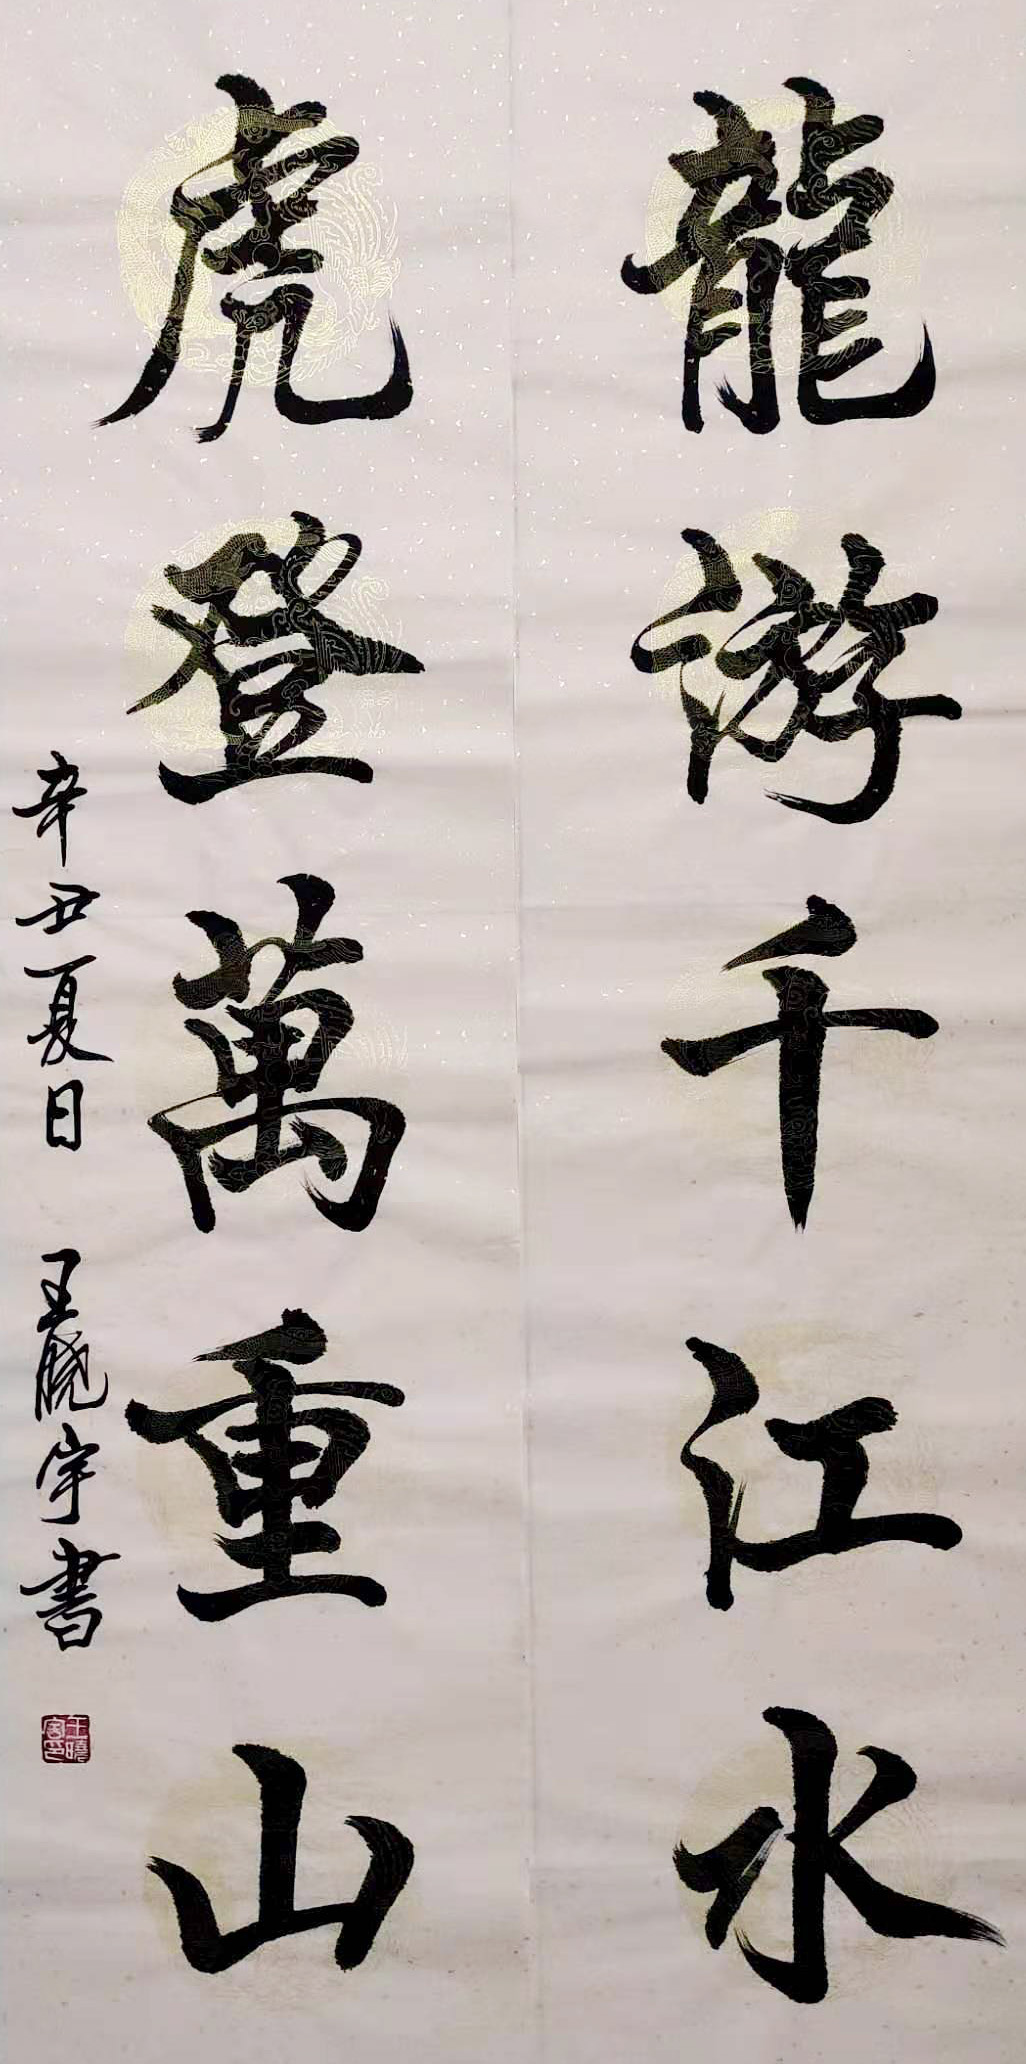 龍游千江水
虎登萬重山
辛丑夏日 王曉宇書
王曉宇印